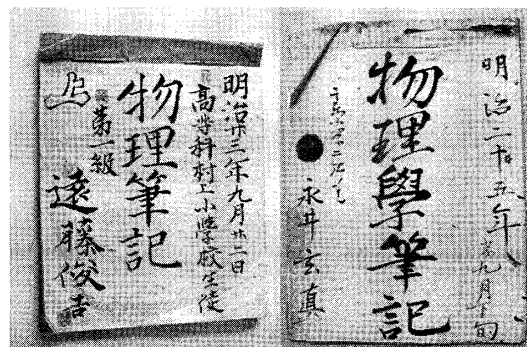 明治二十五年
九月下旬
物理學筆記
永井玄真
明治廿三年九月廿二日
高等科村上小学校生徒
物理筆記
第一級
遠藤俊吉